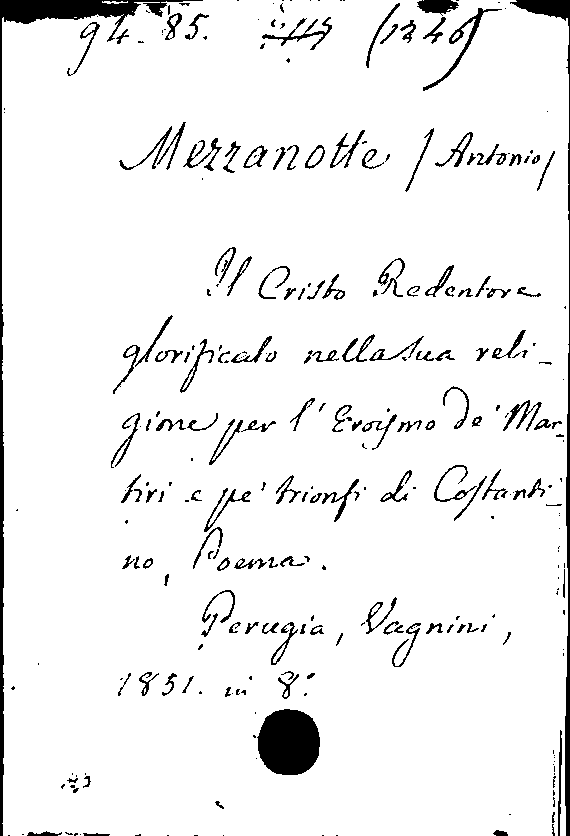 94-85. (1246)
Mezzanotte /Antonio/
Il Cristo Redentore
glorificato nella sua reli-
gione per l'Eroismo de' Mar-
tiri e pe' trionfi di Costanti-
no, Poema.
Perugia, Vagnini,
1851. in 8: